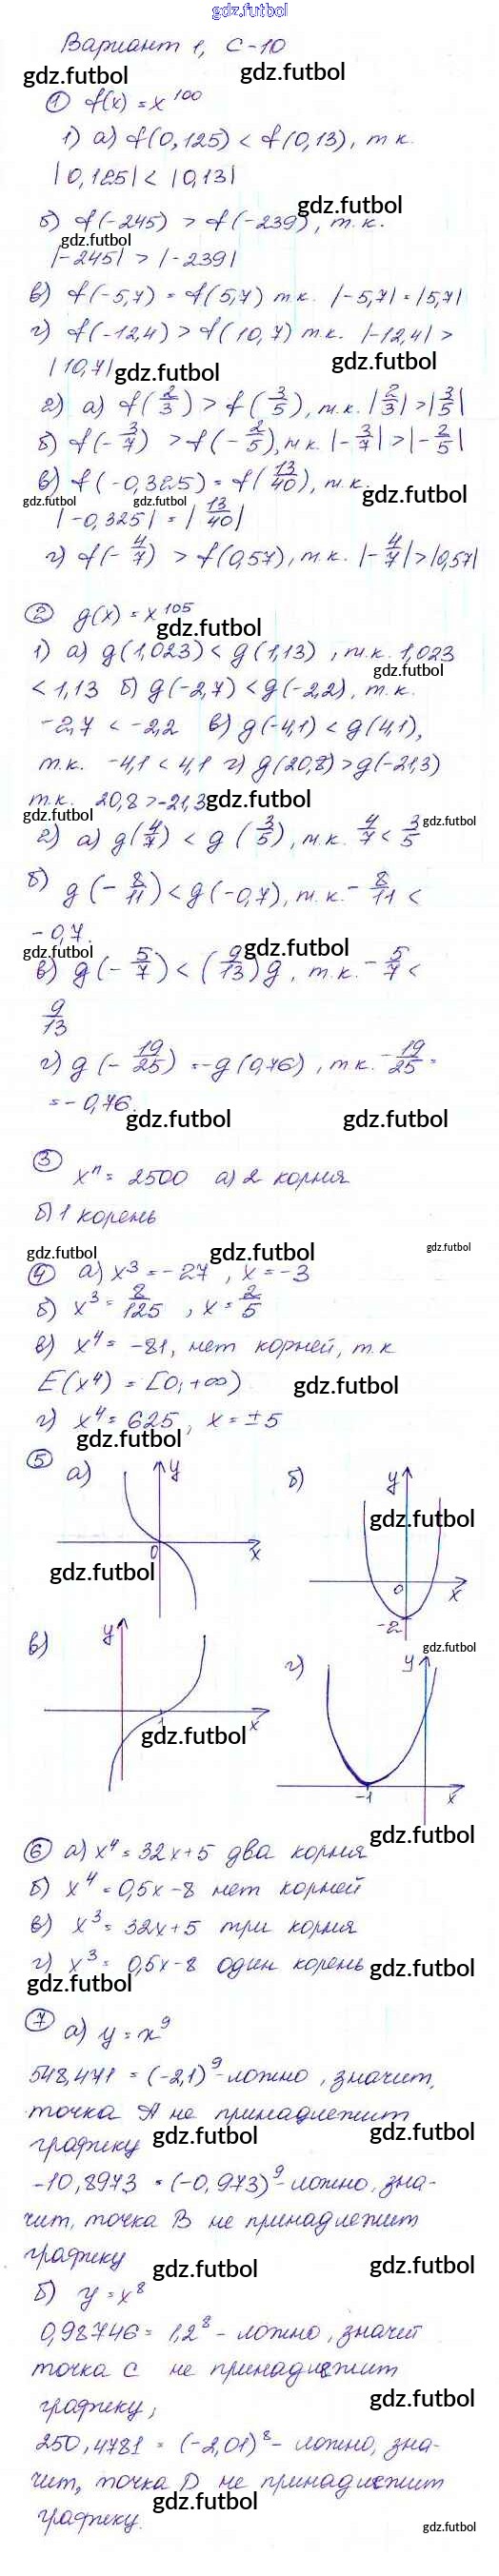 gdz.futbol
Вариант 1, С-10
gdz.futbol gdz.futbol
① f(x) = x^100
1) а) f(0,125) < f(0,13), т.к.
|0,125| < |0,13|
gdz.futbol
б) f(-245) > f(-239), т.к.
gdz.futbol
|-245| > |-239|
в) f(-5,7) = f(5,7) т.к. |-5,7| = |5,7|
г) f(-12,4) > f(10,7) т.к. |-12,4| >
|10,7| gdz.futbol gdz.futbol
2) а) f(2/3) > f(3/5), т.к. |2/3| > |3/5|
б) f(-3/7) > f(-2/5), т.к. |-3/7| > |-2/5|
в) f(-0,325) = f(13/40), т.к.
gdz.futbol gdz.futbol gdz.futbol
|-0,325| = |13/40|
г) f(-4/7) > f(0,57), т.к. |-4/7| > |0,57|
② g(x) = x^105
gdz.futbol
1) а) g(1,023) < g(1,13), т.к. 1,023
gdz.futbol
< 1,13 б) g(-2,7) < g(-2,2), т.к.
-2,7 < -2,2 в) g(-4,1) < g(4,1),
т.к. -4,1 < 4,1 г) g(20,8) > g(-21,3)
т.к. 20,8 > -21,3 gdz.futbol
gdz.futbol gdz.futbol
2) а) g(4/7) < g(3/5), т.к. 4/7 < 3/5
б) g(-8/11) < g(-0,7), т.к. -8/11 <
-0,7.
gdz.futbol gdz.futbol
в) g(-5/7) < (9/13)g, т.к. -5/7 <
9/13
г) g(-19/25) = -g(0,76), т.к. -19/25 =
= -0,76.
gdz.futbol gdz.futbol
③ x^n = 2500 а) 2 корня
б) 1 корень
gdz.futbol gdz.futbol gdz.futbol
④ а) x^3 = -27, x = -3
б) x^3 = 8/125, x = 2/5
в) x^4 = -81, нет корней, т.к
E(x^4) = [0; +∞) gdz.futbol
г) x^4 = 625, x = ±5
gdz.futbol
⑤ а) y б) y
gdz.futbol
0 x
gdz.futbol
0 x
-2
в) y
gdz.futbol
г) y
1 x
gdz.futbol
-1 x
gdz.futbol
⑥ а) x^4 = 32x+5 два корня
б) x^4 = 0,5x-8 нет корней
в) x^3 = 32x+5 три корня
г) x^3 = 0,5x-8 один корень gdz.futbol
gdz.futbol
⑦ а) y = x^9
548,471 = (-2,1)^9 - ложно, значит,
точка A не принадлежит
графику gdz.futbol gdz.futbol
-10,8973 = (-0,973)^9 - ложно, зна-
чит, точка B не принадлежит
графику
gdz.futbol gdz.futbol
б) y = x^8
0,98746 = 1,2^8 - ложно, значит
точка C не принадлежит
графику, gdz.futbol
250,4781 = (-2,01)^8 - ложно, зна-
чит, точка D не принадлежит
графику. gdz.futbol
gdz.futbol